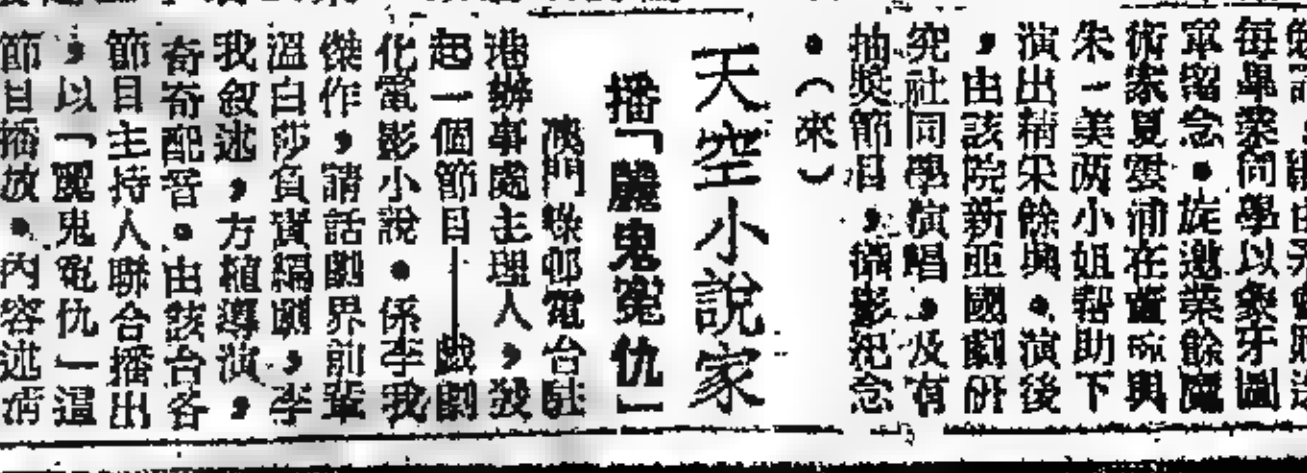 每畢業同學以象牙圖
章留念。旋邀業餘魔
術家夏雲浦在賣與
朱一美两小姐幇助下
演出精采餘興。演後
，由該院新亜國劇研
究社同學演唱，及有
抽奬節目，攝影紀念
。（來）
天空小說家
播「麗鬼寃仇」
澳門綠邨電台駐
港辦事處主理人，發
起一個節目——戲劇
化電影小說。係李我
傑作，請話劇界前輩
溫白莎負責編劇，李
我叙述，方植導演，
奇奇配音。由該台各
節目主持人聯合播出
，以「麗鬼寃仇」這
節目播放。内容述清